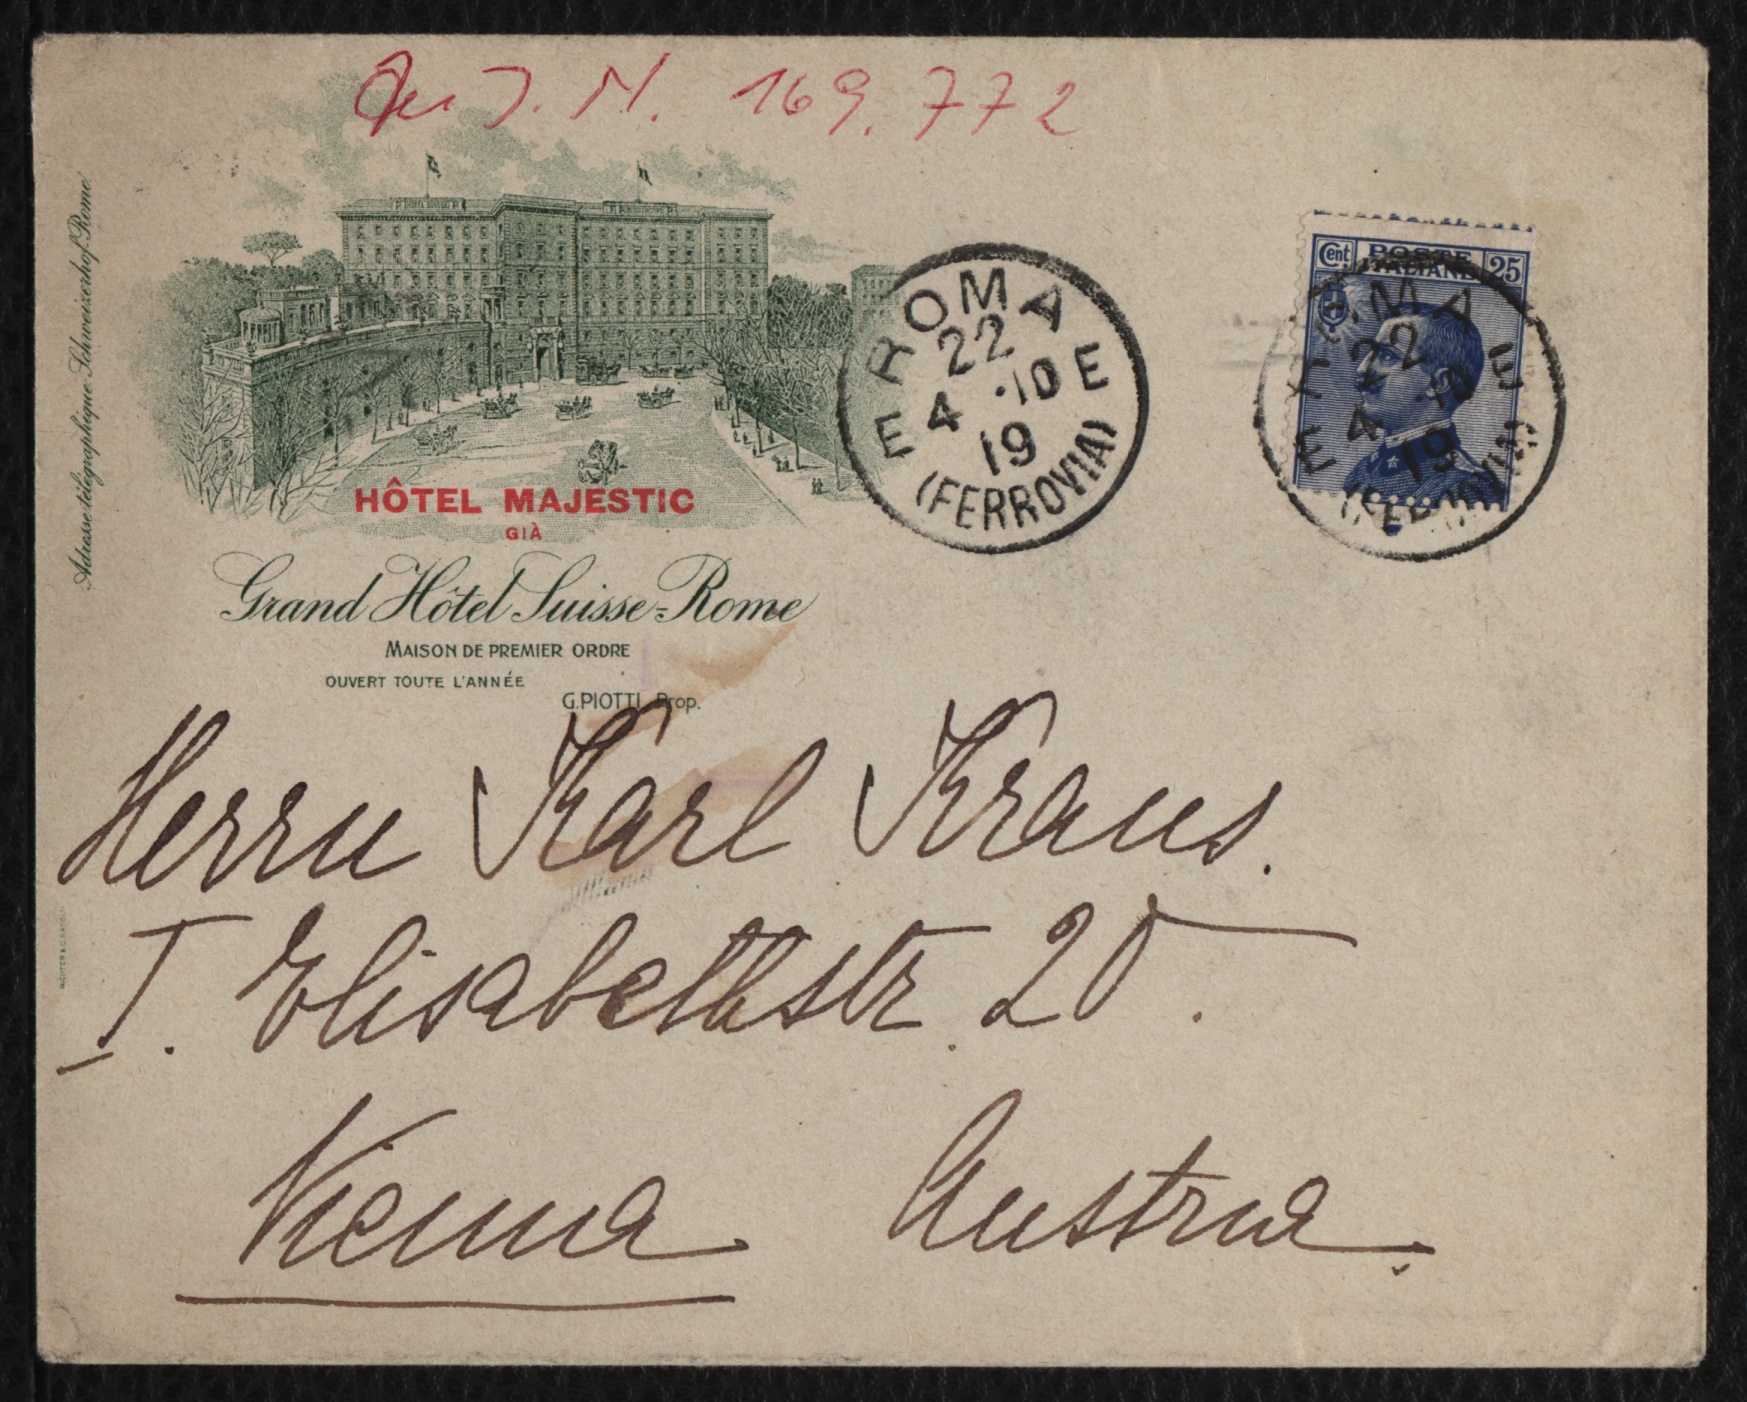 Zu I. N. 169.772
Adresse télégraphique Schweizerhof Rome
HÔTEL MAJESTIC
GIÀ
Grand Hôtel Suisse-Rome
MAISON DE PREMIER ORDRE
OUVERT TOUTE L'ANNÉE
G. PIOTTI Prop.
E ROMA E
22
4 ·10
19
(FERROVIA)
Cent POSTE ITALIANE 25
E ROMA E
22
4 ·10
19
(FERROVIA)
Herrn Karl Kraus.
I. Elisabethstr. 20.
Vienna Austria.